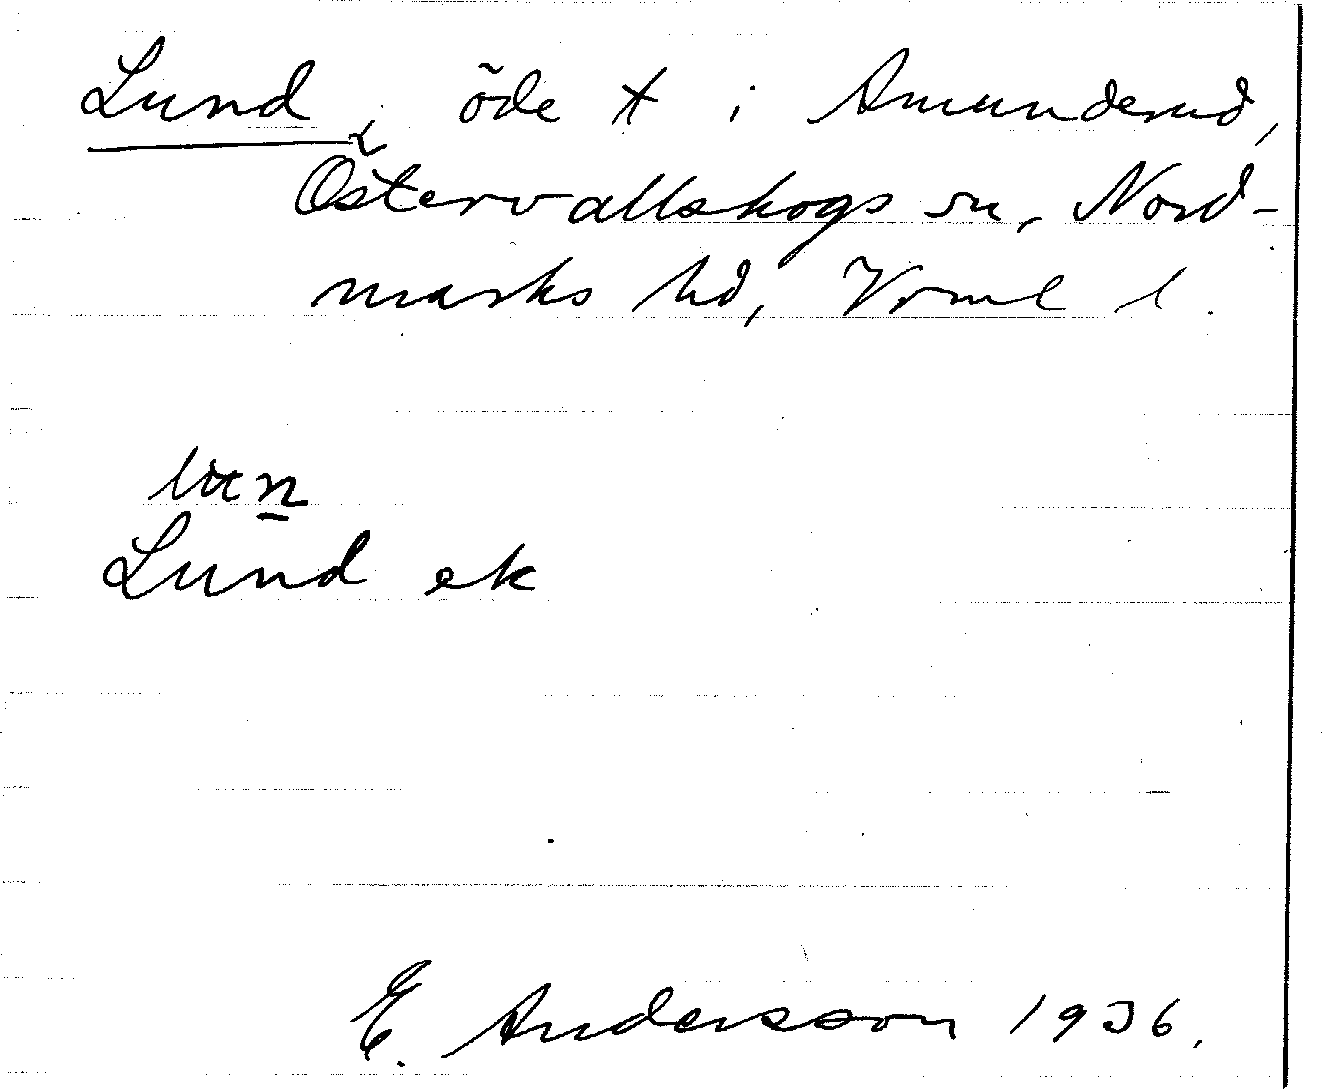 Lund, öde t i Amunderud,
Östervallskogs sn, Nord-
marks hd, Vrml l.
Lund ek
E. Andersson 1936.